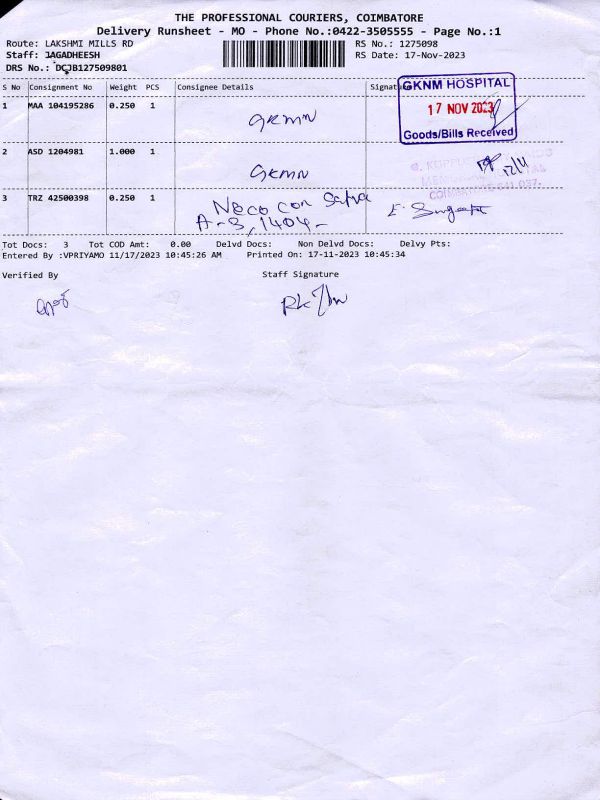 THE PROFESSIONAL COURIERS, COIMBATORE
Delivery Runsheet - MO - Phone No.:0422-3505555 - Page No.:1
Route: LAKSHMI MILLS RD RS No.: 1275098
Staff: JAGADHEESH RS Date: 17-Nov-2023
DRS No.: DCJB127509801
S No Consignment No Weight PCS Consignee Details Signat
GKNM HOSPITAL
17 NOV 2023
Goods/Bills Received
1 MAA 104195286 0.250 1 GKMN
2 ASD 1204981 1.000 1 GKMN
COIMBATORE-641 037.
3 TRZ 42500398 0.250 1
A-8, 1404-
Tot Docs: 3 Tot COD Amt: 0.00 Delvd Docs: Non Delvd Docs: Delvy Pts:
Entered By :VPRIYAMO 11/17/2023 10:45:26 AM Printed On: 17-11-2023 10:45:34
Verified By Staff Signature